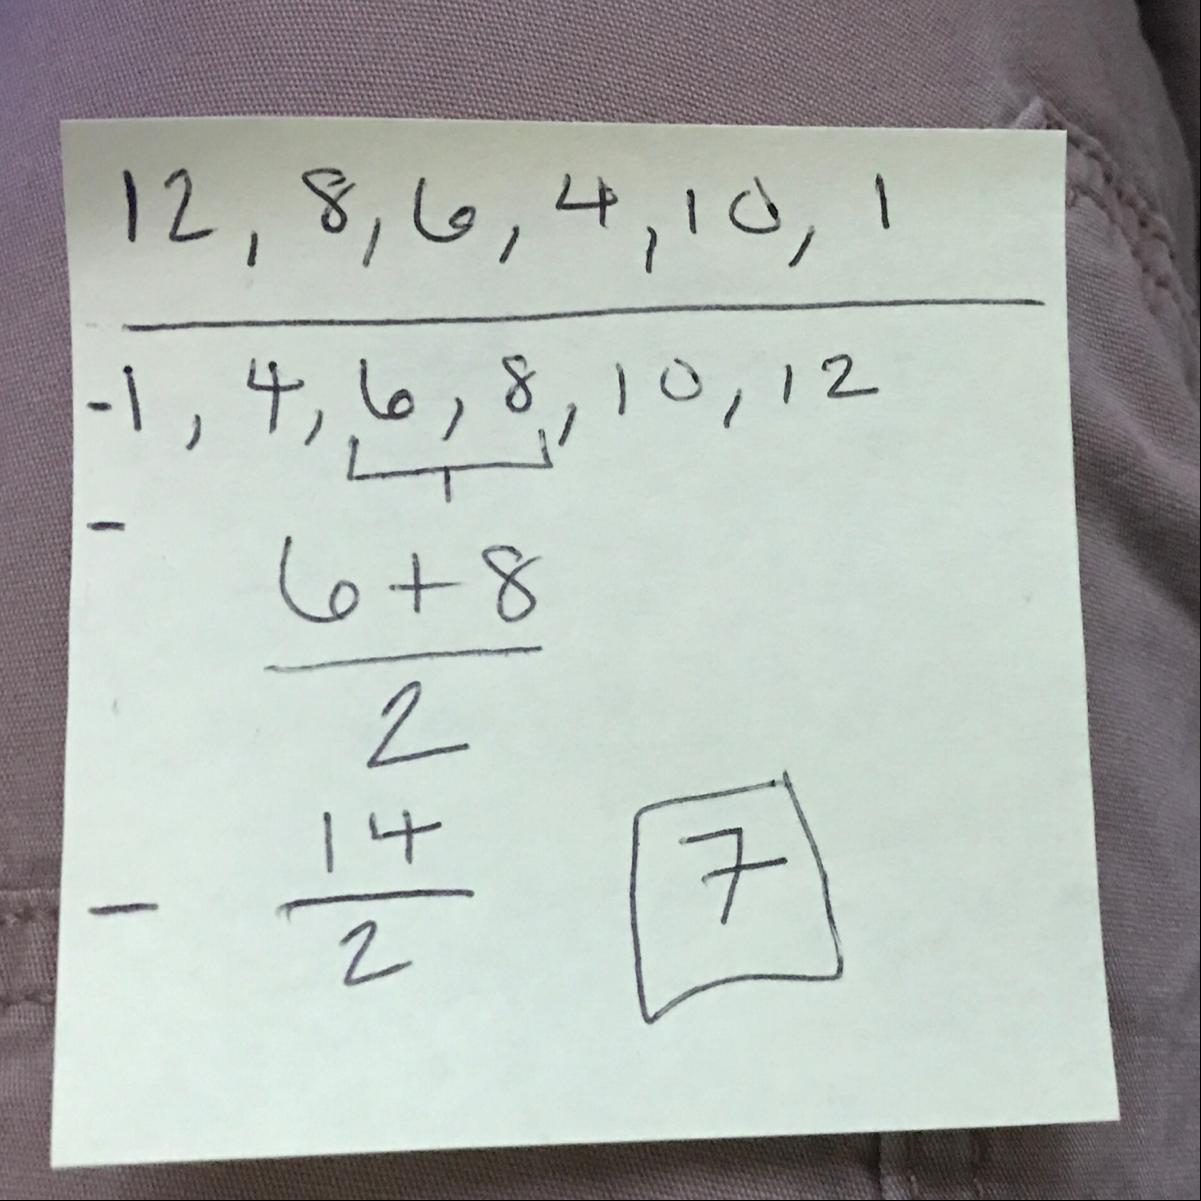 12, 8, 6, 4, 10, 1
-1, 4, 6, 8, 10, 12
-
6+8
2
14
- 2
7